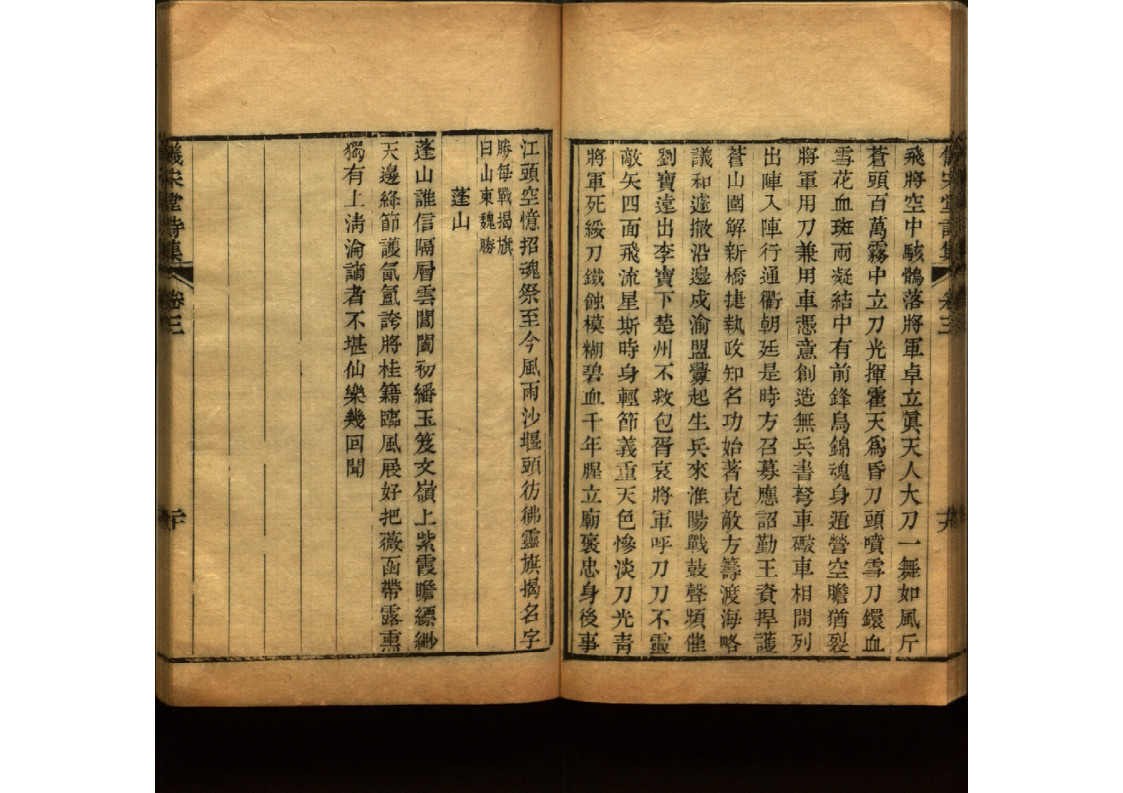 飛將空中駭鶻落將軍卓立眞天人大刀一舞如風斤
蒼頭百萬霧中立刀光揮霍天爲昏刀頭噴雪刀鐶血
雪花血斑兩凝結中有前鋒烏錦魂身遁營空膽猶裂
將軍用刀兼用車憑意創造無兵書弩車礮車相間列
出陣入陣行通衢朝廷是時方召募應詔勤王資捍護
蒼山圍解新橋捷執政知名功始著克敵方籌渡海略
議和遽撤沿邊戍渝盟釁起生兵來淮陽戰鼓聲頻催
劉寶遠出李寶下楚州不救包胥哀將軍呼刀刀不靈
敵矢四面飛流星斯時身輕節義重天色慘淡刀光青
將軍死綏刀鐵蝕模糊碧血千年腥立廟褒忠身後事
江頭空憶招魂祭至今風雨沙堰頭彷彿靈旗揭名字
勝每戰揭旗
曰山東魏勝
蓬山
蓬山誰信隔層雲閬閬初繙玉笈文嶺上紫霞瞻縹緲
天邊絳節護氤氳誇將桂籍臨風展好把薇函帶露熏
獨有上淸淪謫者不堪仙樂幾回聞
儀宋堂詩集
卷三